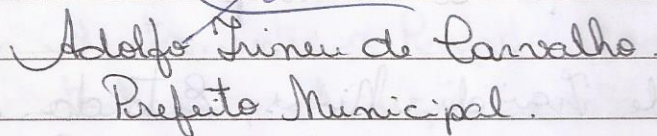 Adolfo Irineu de Carvalho.
Prefeito Municipal.